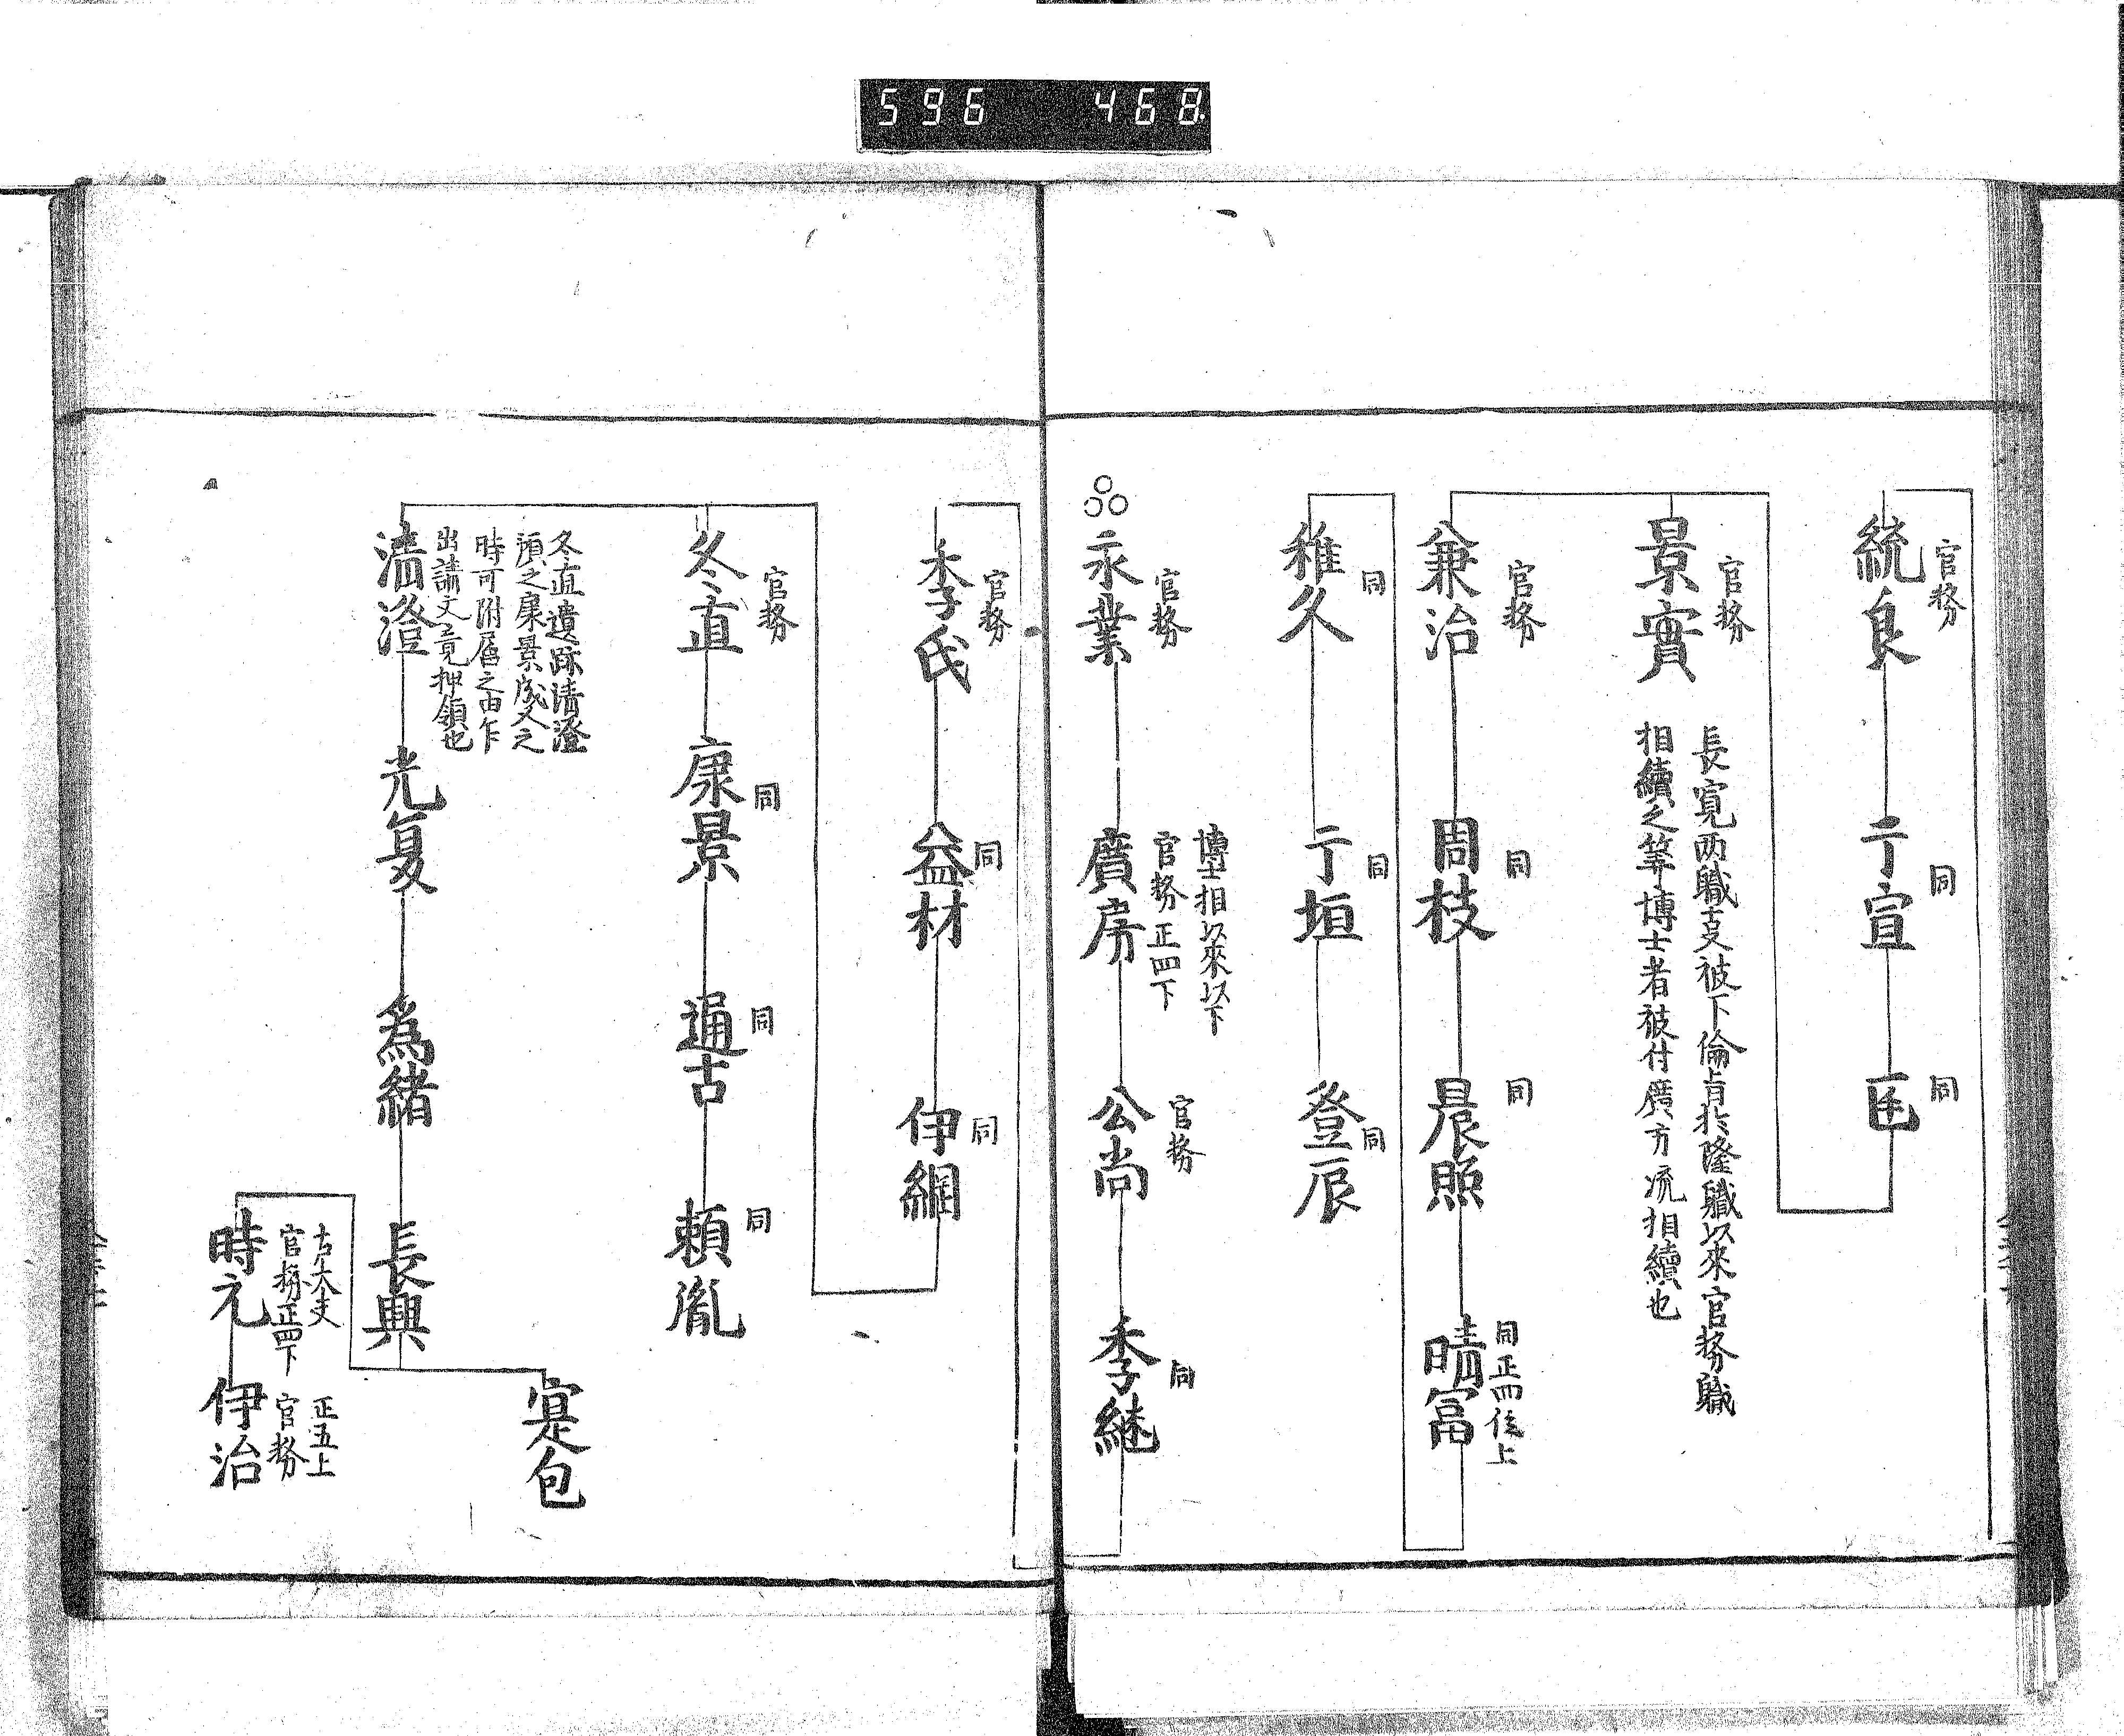 596 468.
官務
統良
同
亍宣
同
匡
官務
景實
長寛両職支被下倫旨於隆職以來官務職
相續之筭博士者被付廣方流相續也
官務
兼治
同
周枝
同
晨照
同正四位上
晴冨
同
稚久
同
亍垣
同
登辰
官務
永業
博士相以來以下
官務正四下
廣房
官務
公尚
同
季継
官務
季氏
同
益材
同
伊綱
官務
冬直
同
康景
同
通古
同
頼胤
冬直遺跡清澄
預之康景成人之
時可附属之由乍
出請文竟押領也
清澄
光夐
為緒
長興
寔包
官務正四下
時元
正五上
官務
伊治